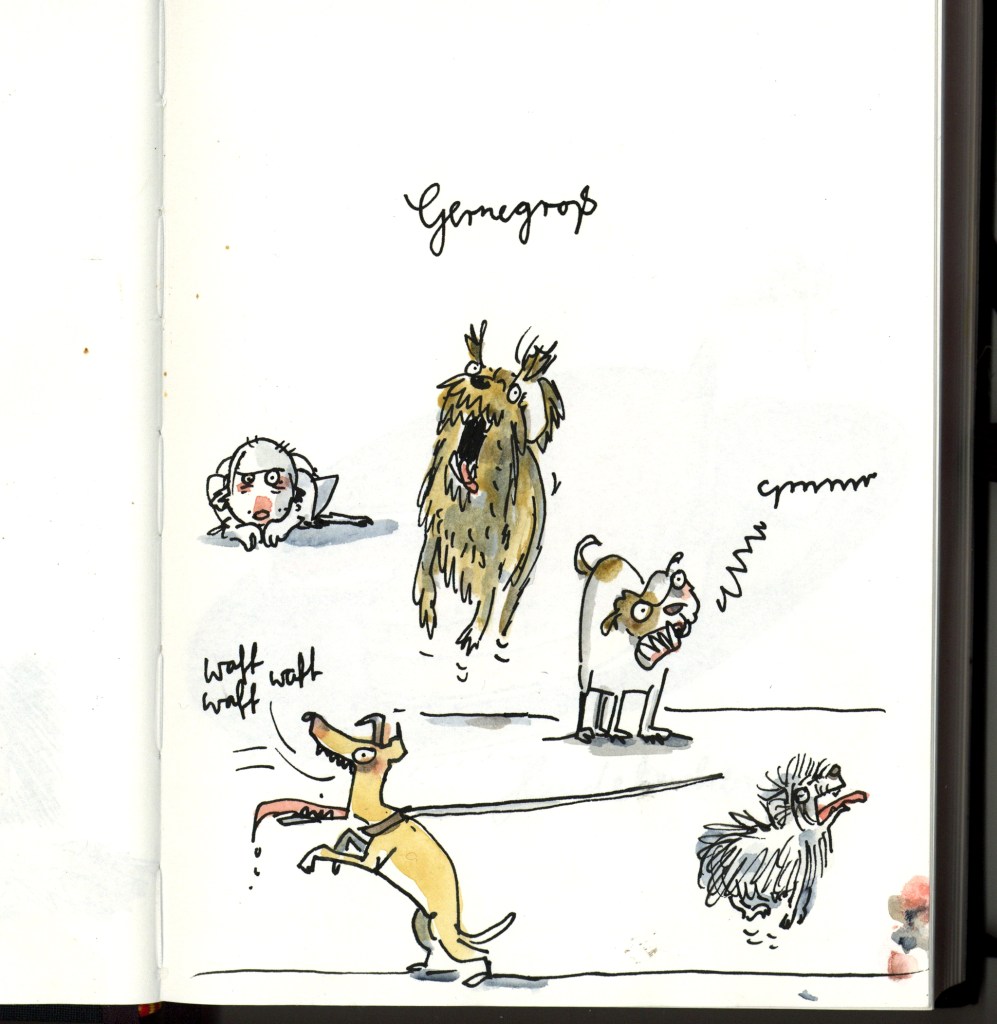 Gernegroß
grrrrrr
waft waft
waft